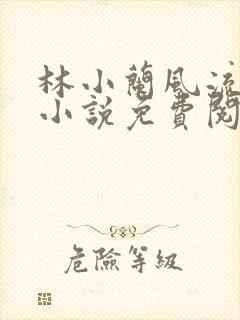 林小蘭風流
小說免費閱
危險等級